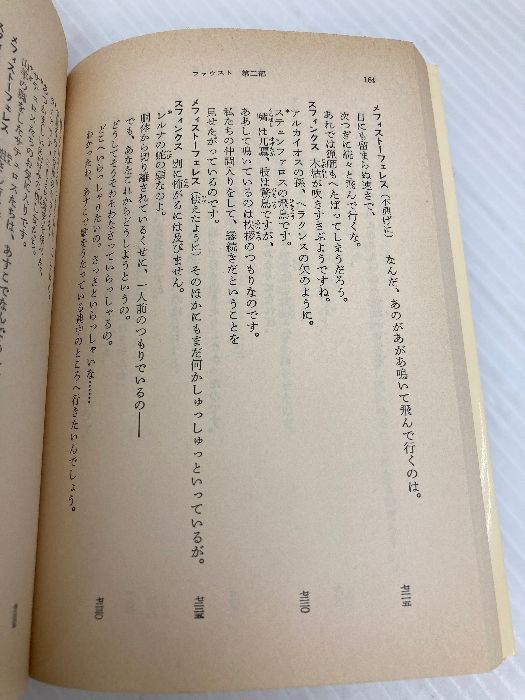 ファウスト 第二部
164
メフィストーフェレス（不機げに） なんだ、あのがあがあ鳴いて飛んで行くのは。
目にも留まらぬ速さで、
次つぎに続々と飛んで行くな。
あれでは猟師もへたばってしまうだろう。
スフィンクス 木枯が吹きすさぶようですね。
アルカイオスの孫、ヘラクレスの矢のように。
ステュンファロスの飛鳥です。
ああして鳴いているのは挨拶のつもりなのです。
私たちの仲間入りをして、縁続きだということを
見せたがっているのです。
メフィストーフェレス（怯えたように）そのほかにもまだ何かしゅっしゅっといっているが。
スフィンクス 別に怖がるには及びません。
レルナの蛇の頭なのよ。
胴体から切り離されているくせに、一人前のつもりでいるの——
でも、あなたこれからどうしようというの。
どうしてそうそわそわなさっていらっしゃるの。
どこへいらっしゃりたいの、さっさといらっしゃいな……
わかったわ、あすこで
のところへ行きたいんでしょう。
メフィストーフェレス
七二二五
七二三〇